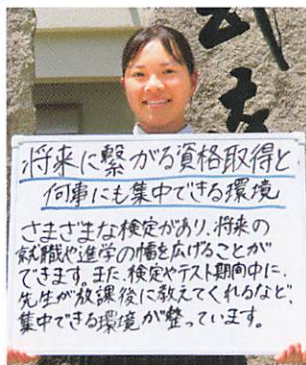 将来に繋がる資格取得と
何事にも集中できる環境
さまざまな検定があり、将来の
就職や進学の幅を広げることが
できます。また、検定やテスト期間中に、
先生が放課後に教えてくれるなど、
集中できる環境が整っています。